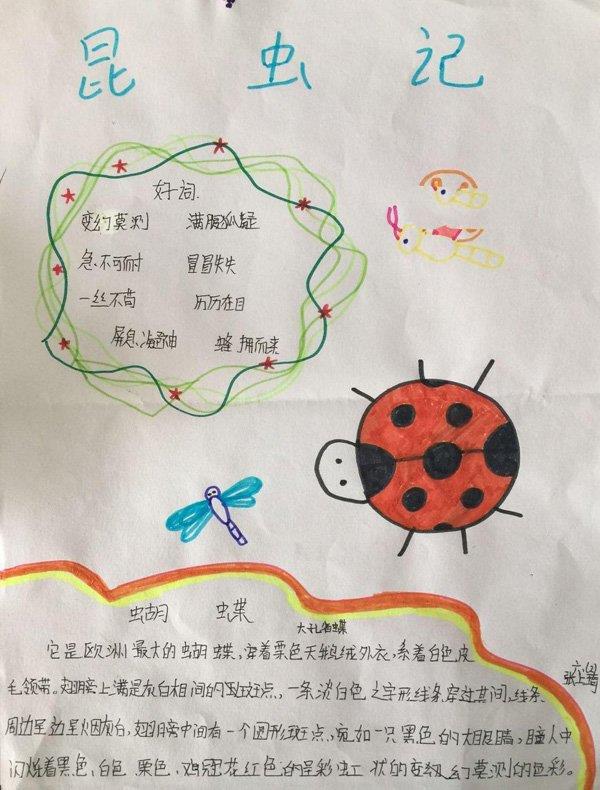 昆虫记
好词
变幻莫测 满腹狐疑
急不可耐 冒冒失失
一丝不苟 历历在目
屏息凝神 蜂拥而来
蝴蝶
大孔雀蝶
它是欧洲最大的蝴蝶，穿着栗色天鹅绒外衣，系着白色皮
毛领带。翅膀上满是灰白相间的斑点，一条淡白色之字形线条穿过其间，线条
周边呈烟灰白，翅膀中间有一个圆形斑点，宛如一只黑色的大眼睛，瞳人中
闪烁着黑色，白色 栗色，鸡冠花红色的呈彩虹 状的变幻莫测的色彩。